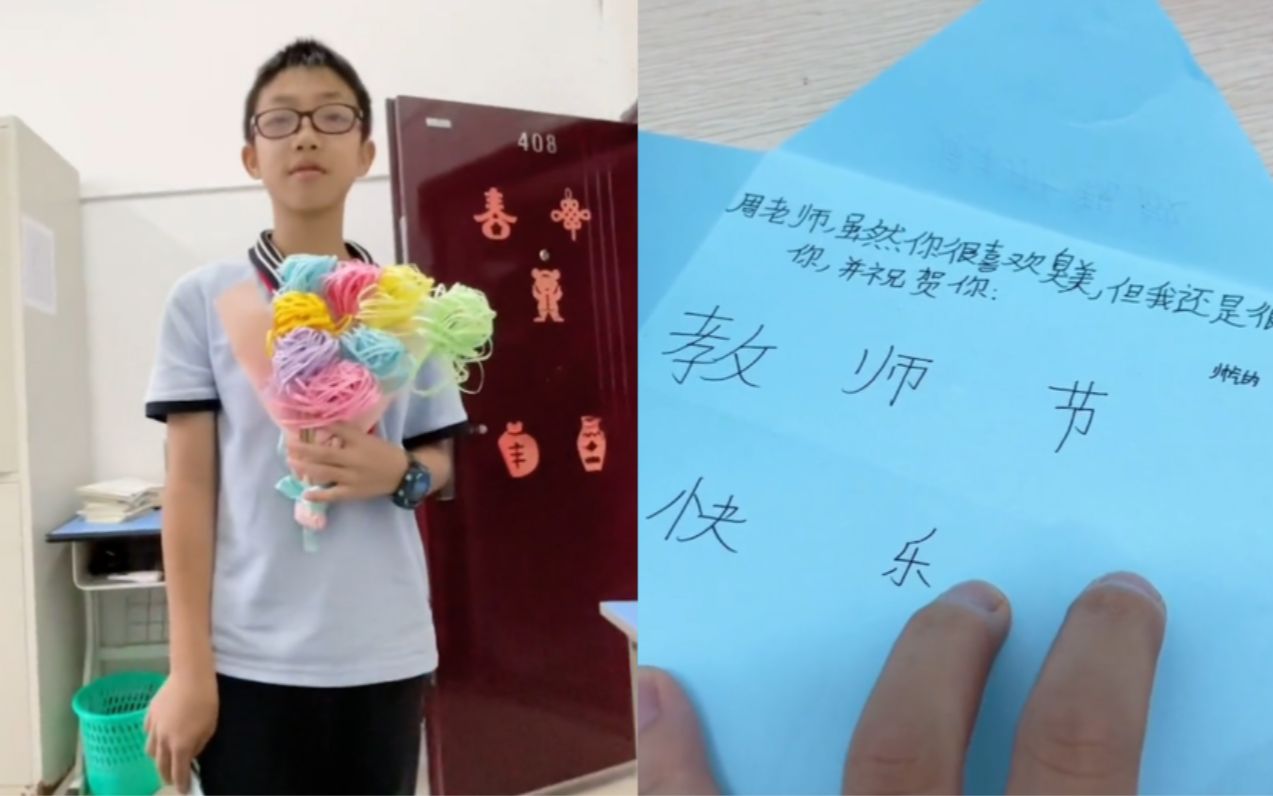 408
春
丰
周老师,虽然你很喜欢臭美,但我还是很
你,并祝贺你:
教 师 节
帅气的
快 乐